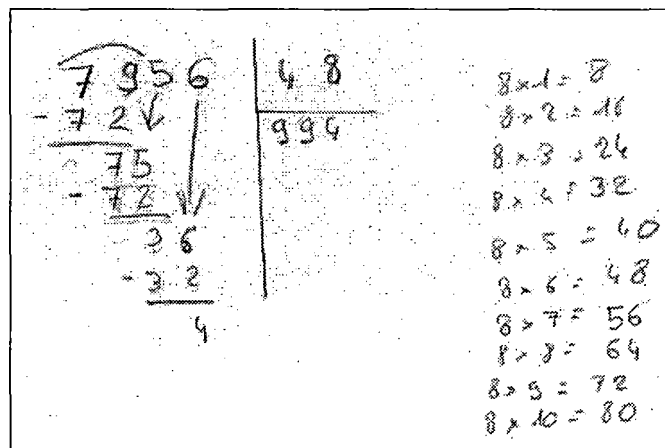 7956 48
- 72 994
75
- 72
36
- 32
4
8 × 1 = 8
8 × 2 = 16
8 × 3 = 24
8 × 4 = 32
8 × 5 = 40
8 × 6 = 48
8 × 7 = 56
8 × 8 = 64
8 × 9 = 72
8 × 10 = 80